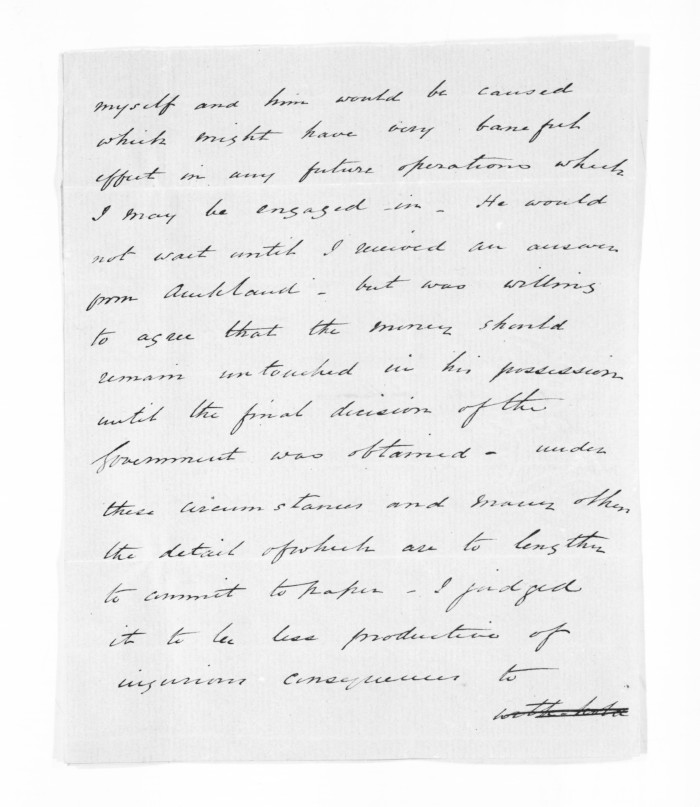 myself and him would be caused
which might have very baneful
effect in any future operations which
I may be engaged in - He would
not wait until I received an answer
from Auckland - but was willing
to agree that the money should
remain untouched in his possession
until the final decision of the
Government was obtained - under
these circumstances and many others
the detail of which are to lengthy
to commit to paper - I judged
it to be less productive of
injurious consequences to